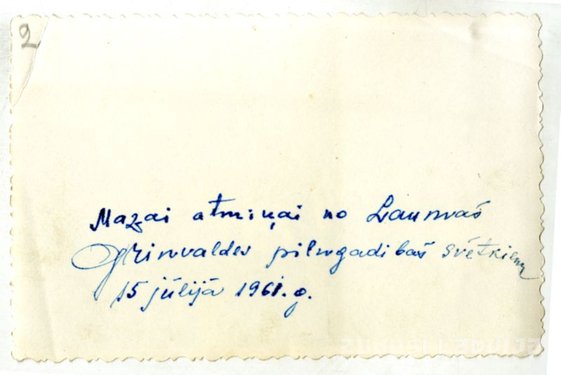 2
Mazai atmiņai no Laumas
Grinvaldes pilngadibas svētkiem
15 jūlijā 1961. g.